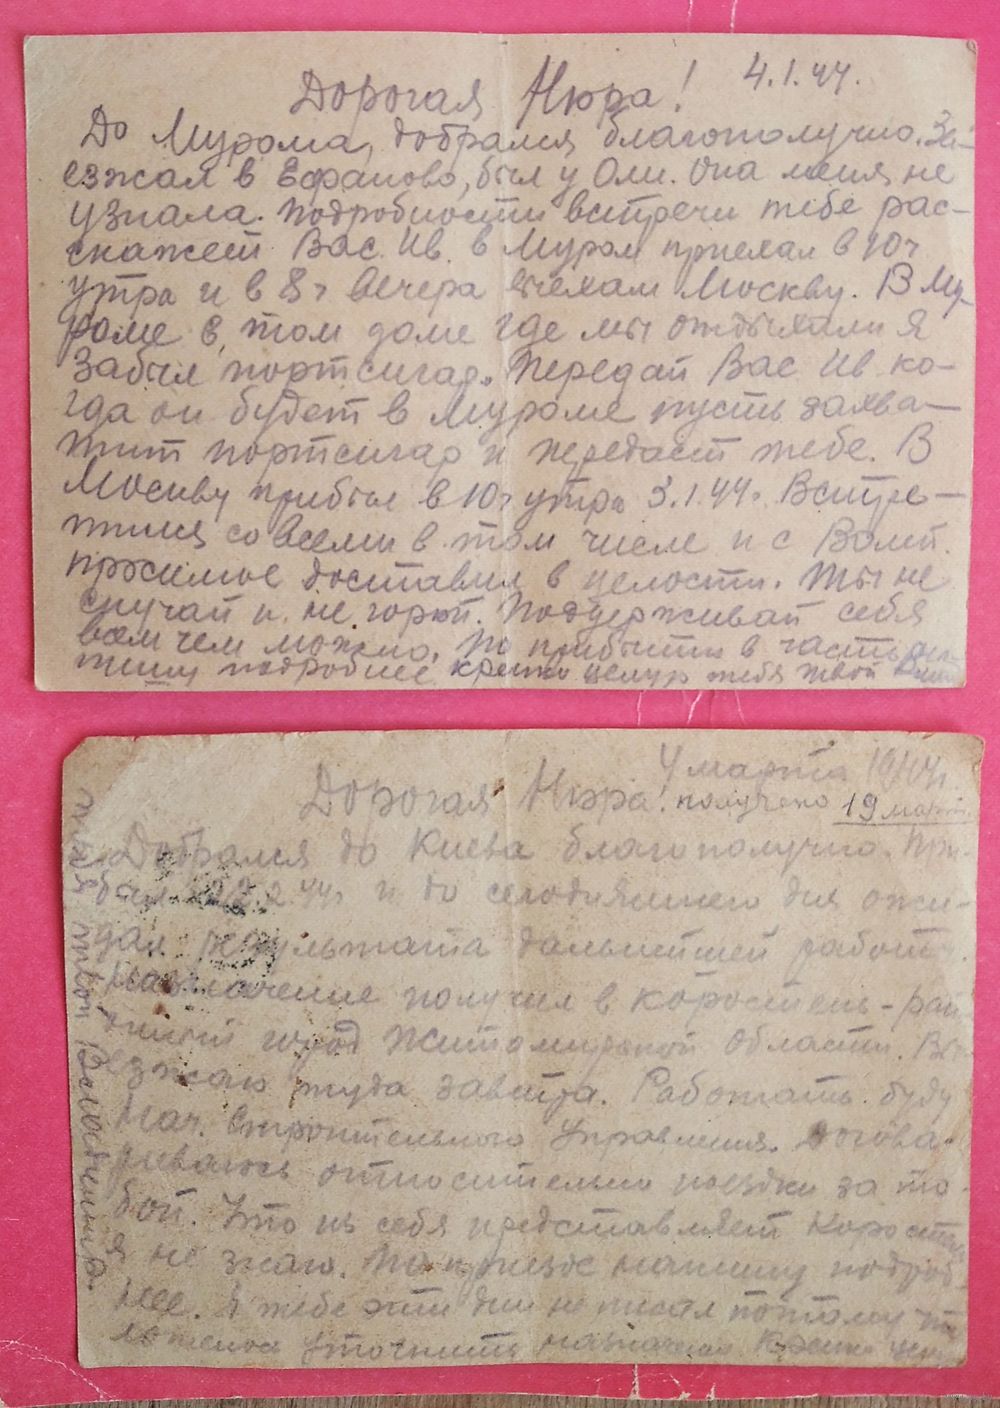 Дорогая Нюра! 4.1.44.
До Мурома, добрался благополучно. За-
езжал в Ефаново, был у Оли. Она меня не
узнала. Подробности встречи тебе рас-
скажет Вас. Ив. в Муром приехал в 10ч
утра и в 8ч вечера выехал Москву. В Му-
роме в том доме где мы отдыхали я
забыл портсигар. Передай Вас Ив ко-
гда он будет в Муроме пусть захва-
тит портсигар и передаст тебе. В
Москву прибыл в 10ч утра 3.1.44. Встре-
тился со всеми в том числе и с
доставил в целости. Ты не
скучай и не горюй. Поддерживай себя
всем чем можно. По прибытии в часть
пишу подробнее крепко целую тебя твой
4 марта 1944г.
Дорогая Нюра! получено 19 март
Добрался до Киева благополучно. При-
был 22.2.44г и до сегодняшнего дня ожи-
дал результата дальнейшей работы.
Назначение получил в Коростень - рай-
онный город Житомирской Области. Вы-
езжаю туда завтра. Работать буду
Нач. Строительного Управления. Догова-
риваюсь относительно поездки за то-
бой. Что из себя представляет Коростень
я не знаю. По приезде напишу подроб-
нее. Я тебе эти дни не писал потому что
уточнить назначение Крепко целую
тебя твой Володенька